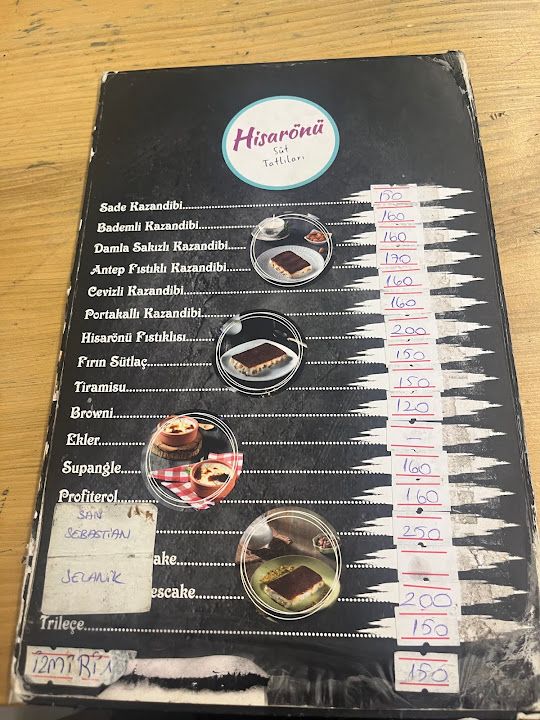 Hisarönü
Süt
Tatlıları
Sade Kazandibi 150
Bademli Kazandibi 160
Damla Sakızlı Kazandibi 160
Antep Fıstıklı Kazandibi 170
Cevizli Kazandibi 160
Portakallı Kazandibi 160
Hisarönü Fıstıklısı 200
Fırın Sütlaç 150
Tiramisu 150
Browni 120
Ekler —
Supangle 160
Profiterol 160
SAN
SEBASTIAN 250
ake
SELANİK
escake 200
Trileçe 150
İZMİR 150